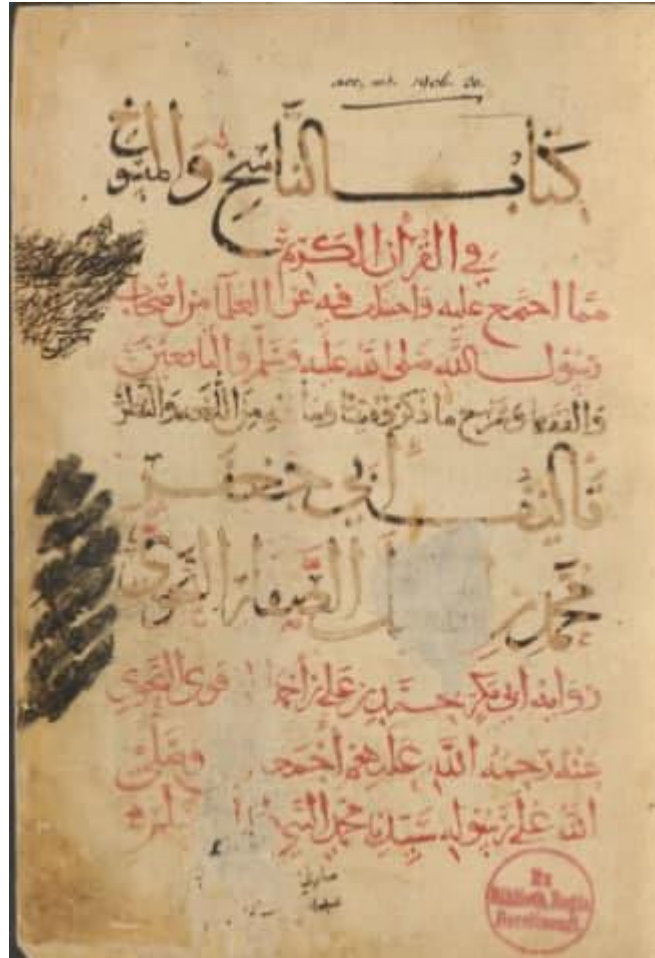 acc. ms. 1906. 20.
كتاب الناسخ والمنسوخ
في القرآن الكريم
مما اجتمع عليه واختلف فيه عن العلماء من أصحاب
رسول الله صلى الله عليه وسلم والتابعين
والفقهاء وشرح ما ذكروه وما فيه من اللغة والنظر
تأليف أبي جعفر
محمد بن الصفار النحوي
رواية أبي بكر محمد بن علي بن أحمد النحوي
عنه رحمة الله عليهم أجمعين وصلى
الله على رسوله سيدنا محمد النبي
Ex
Biblioth. Regia
Berolinensi.